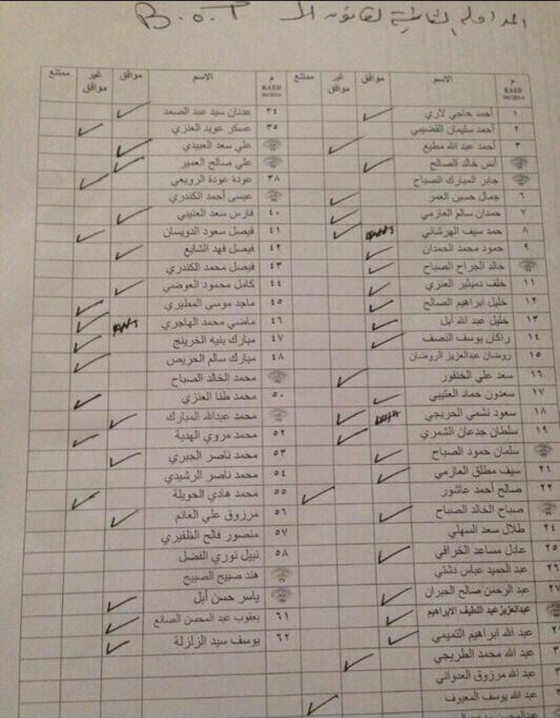 المداولة الثانية لقانون الـ B.O.T
م RAED الاسم موافق غير موافق ممتنع
١ أحمد حاجي لاري
٢ أحمد سليمان القضيبي
٣ أحمد عبد الله مطيع
أنس خالد الصالح
جابر المبارك الصباح
٦ جمال حسين العمر
٧ حمدان سالم العازمي
٨ حمد سيف الهرشاني
٩ حمود محمد الحمدان
خالد الجراح الصباح
١١ خلف دميثير العنزي
١٢ خليل ابراهيم الصالح
١٣ خليل عبد الله أبل
١٤ راكان يوسف النصف
١٥ روضان عبدالعزيز الروضان
١٦ سعد علي الخنفور
١٧ سعدون حماد العتيبي
١٨ سعود نشمي الحريجي
١٩ سلطان جدعان الشمري
سلمان حمود الصباح
٢١ سيف مطلق العازمي
٢٢ صالح أحمد عاشور
صباح الخالد الصباح
٢٤ طلال سعد السهلي
٢٥ عادل مساعد الخرافي
٢٦ عبد الحميد عباس دشتي
٢٧ عبد الرحمن صالح الجيران
عبدالعزيز عبد اللطيف الابراهيم
عبد الله ابراهيم التميمي
عبد الله محمد الطريجي
عبد الله مرزوق العدواني
عبد الله يوسف المعيوف
م RAED الاسم موافق غير موافق ممتنع
٣٤ عدنان سيد عبد الصمد
٣٥ عسكر عويد العنزي
علي سعد العبيدي
علي صالح العمير
٣٨ عودة عودة الرويعي
عيسى أحمد الكندري
٤٠ فارس سعد العتيبي
٤١ فيصل سعود الدويسان
٤٢ فيصل فهد الشايع
٤٣ فيصل محمد الكندري
٤٤ كامل محمود العوضي
٤٥ ماجد موسى المطيري
٤٦ ماضي محمد الهاجري
٤٧ مبارك بنيه الخرينج
٤٨ مبارك سالم الحريص
محمد الخالد الصباح
٥٠ محمد طنا العنزي
محمد عبدالله المبارك
٥٢ محمد مروي الهدية
٥٣ محمد ناصر الجبري
٥٤ محمد ناصر الرشيدي
٥٥ محمد هادي الحويلة
٥٦ مرزوق علي الغانم
٥٧ منصور فالح الظفيري
٥٨ نبيل نوري الفضل
هند صبيح الصبيح
ياسر حسن أبل
٦١ يعقوب عبد المحسن الصانع
٦٢ يوسف سيد الزلزلة